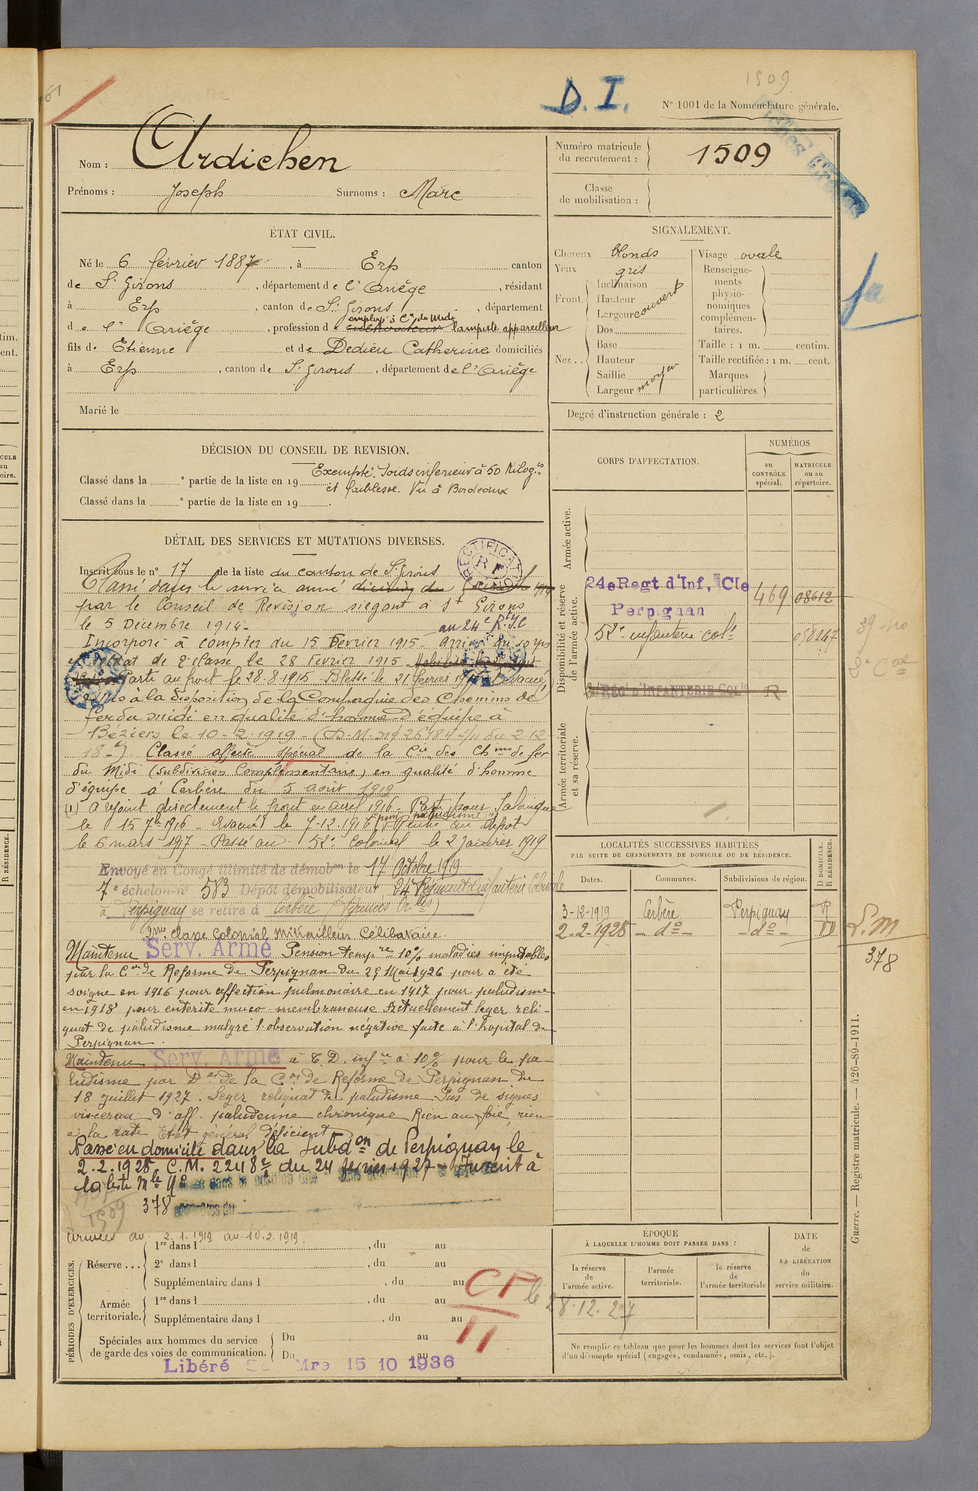 1509
D. I.
N° 1001 de la Nomenclature générale.
Nom : Ardichen
Prénoms : Joseph Surnoms : Marc
Numéro matricule du recrutement : 1509
Classe de mobilisation :
ÉTAT CIVIL.
Né le 6 février 1887, à Erp canton
de St Girons, département de l'Ariège, résidant
à Erp, canton de St Girons, département
de l'Ariège, profession de cultivateur lampiste appareilleur
employé à Cie du Midi
fils de Etienne et de Dedieu Catherine domiciliés
à Erp, canton de St Girons, département de l'Ariège
Marié le
SIGNALEMENT.
Cheveux blonds
Yeux gris
Front Inclinaison
Hauteur
Largeur couvert
Nez Dos
Base
Hauteur
Saillie
Largeur moyen
Visage ovale
Renseignements physionomiques complémentaires.
Taille : 1 m. centim.
Taille rectifiée : 1 m. cent.
Marques particulières
Degré d'instruction générale : 2
DÉCISION DU CONSEIL DE REVISION.
Classé dans la ° partie de la liste en 19
Exempté. Poids inférieur à 50 Kilogs
et faiblesse. Vu à Bordeaux
Classé dans la ° partie de la liste en 19
DÉTAIL DES SERVICES ET MUTATIONS DIVERSES.
Inscrit sous le n° 17 de la liste du canton de St Girons
Classé dans le service armé
par le Conseil de Revision siegant à St Girons
le 5 Décembre 1914.
au 24e R.I.C
Incorporé à compter du 15 Février 1915. Arrivé au corps
et soldat de 2e classe le 28 février 1915.
Parti au front le 28-8-1915. Blessé le 21 février
à la disposition de la Compagnie des Chemins de
fer du midi en qualité d'homme d'équipe à
Béziers le 10-2-1919
Classé affecté spécial de la Cie des Chins de fer
du Midi (subdivision Complémentaire) en qualité d'homme
d'équipe à Cerbère du 5 août 1919
(1) a rejoint directement le front en avril 1916. Parti pour Salonique
le 15 7bre 1916. Evacué le 7-12-1916 pour paludisme. Rentré au dépôt
le 6 mars 1917. Passé au 52e Colonial le 2 janvier 1919
Envoyé en Congé illimité de démobon le 17 Octobre 1919
7e échelon n° 583 Dépôt démobilisateur 24e Régiment d'infanterie Coloniale
à Perpignan se retire à Cerbère (Pyrénées Orles)
2me classe Colonial Mitrailleur Célibataire.
Maintenu Serv. Armé Pension tempre 10% maladies imputables
par la Con de Réforme de Perpignan du 25 Mai 1926 pour a été
soigné en 1916 pour affection pulmonaire en 1917 pour paludisme
en 1918 pour entérite muco membraneuse Actuellement leger reliquat
de paludisme malgré l'observation négative faite à l'hôpital de
Perpignan.
Maintenu Serv. Armé à T.D. infre à 10% pour le paludisme
par Don de la Con de Réforme de Perpignan du
18 juillet 1927. Leger reliquat de paludisme Pas de signes
viscéraux d'aff. paludéenne chronique Rien au foie, rien
à la rate Etat général déficient
Passé en domicile dans la Subdon de Perpignan le
2.2.1928, C.M. 2248 du 24 février 1927 - Inscrit à
la liste Mle
378
1509
CORPS D'AFFECTATION.
NUMÉROS
au CONTRÔLE spécial.
MATRICULE ou au répertoire.
Armée active.
Disponibilité et réserve de l'armée active.
24e Regt d'Inf, Cle
Perpignan
469 08612
52e infanterie colle
058247
RÉG D'INFANTERIE COLle
Armée territoriale et sa réserve.
LOCALITÉS SUCCESSIVES HABITÉES
PAR SUITE DE CHANGEMENTS DE DOMICILE OU DE RÉSIDENCE.
Dates. Communes. Subdivisions de région.
D DOMICILE. R RÉSIDENCE.
3-12-1919 Cerbère Perpignan R
2-2-1928 - do - - do - D
S.M
378
Armée du 2.1.1919 au 10.2.1919.
PÉRIODES D'EXERCICES.
Réserve... 1re dans l , du au
2e dans l , du au
Supplémentaire dans l , du au
Armée territoriale. 1re dans l , du au
Supplémentaire dans l , du au
Spéciales aux hommes du service de garde des voies de communication. Du au
Du au
Libéré Mre 15 10 1936
ÉPOQUE
À LAQUELLE L'HOMME DOIT PASSER DANS :
la réserve de l'armée active.
l'armée territoriale.
la réserve de l'armée territoriale
DATE de LA LIBÉRATION du service militaire.
le 28.12.27
Ne remplir ce tableau que pour les hommes dont les services font l'objet
d'un décompte spécial (engagés, condamnés, omis, etc.).
Guerre. — Registre matricule. — 426-89-1911.